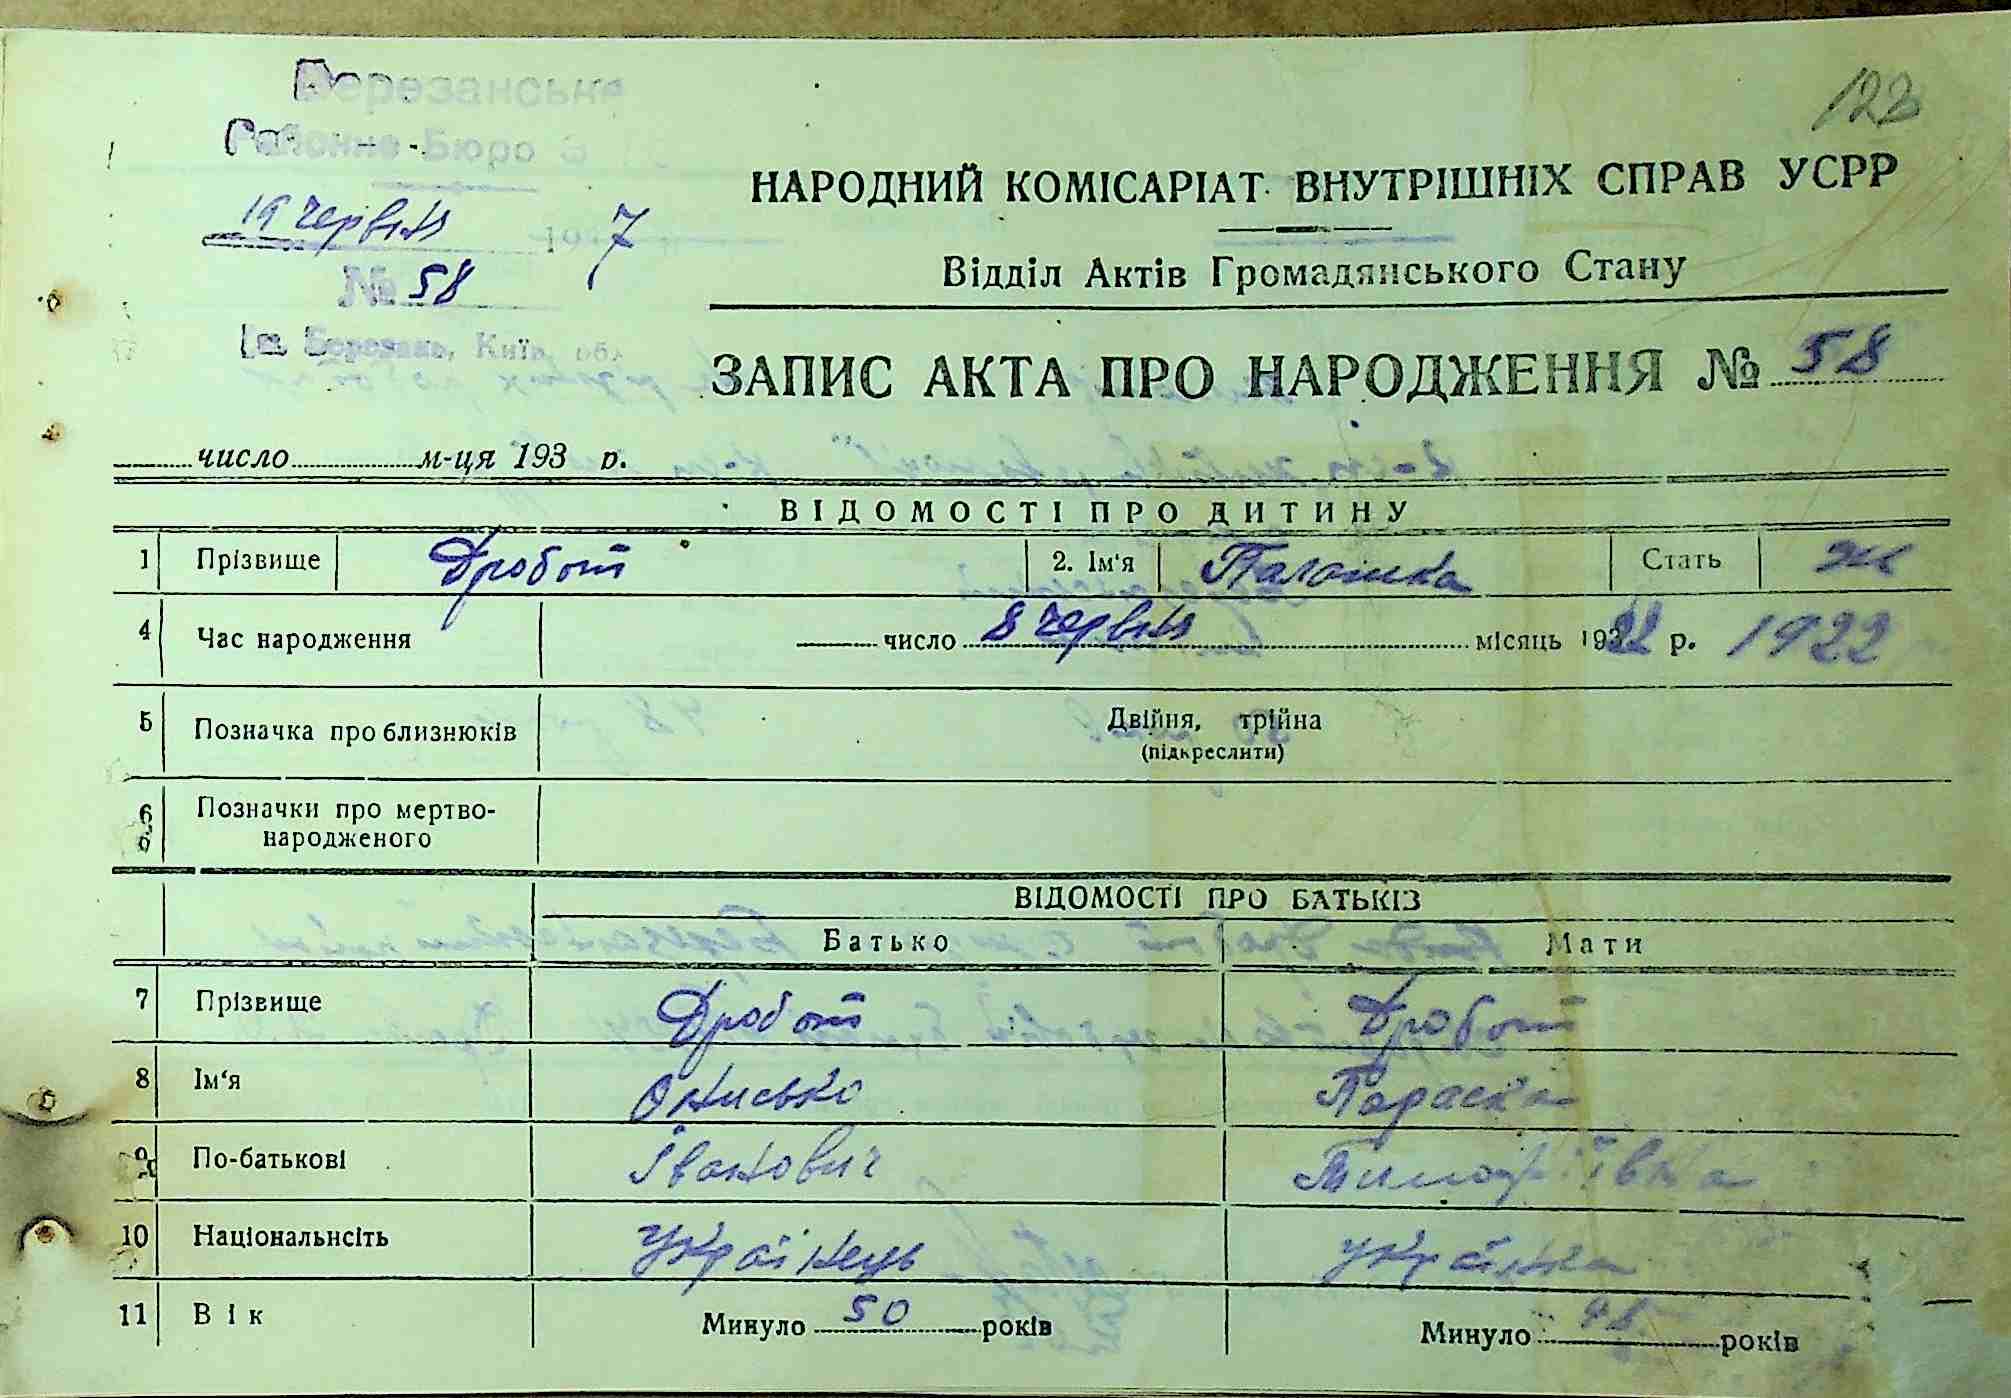 Березанське
Районне Бюро
122
19 червня 19 7
№ 58
Березань, Київ. обл.
НАРОДНИЙ КОМІСАРІАТ ВНУТРІШНІХ СПРАВ УСРР
Відділ Актів Громадянського Стану
ЗАПИС АКТА ПРО НАРОДЖЕННЯ № 58
число м-ця 193 р.
ВІДОМОСТІ ПРО ДИТИНУ
1 Прізвище Дробот 2. Ім'я Палашка Стать ж
4 Час народження число 8 червня місяць 1922 р. 1922
5 Позначка про близнюків Двійня, трійна
(підкреслити)
6 Позначки про мертво-
народженого
ВІДОМОСТІ ПРО БАТЬКІВ
Батько Мати
7 Прізвище Дробот Дробот
8 Ім'я Онисько Параска
9 По-батькові Іванович Тимофіївна
10 Національнсіть Українець Українка
11 Вік Минуло 50 років Минуло 48 років